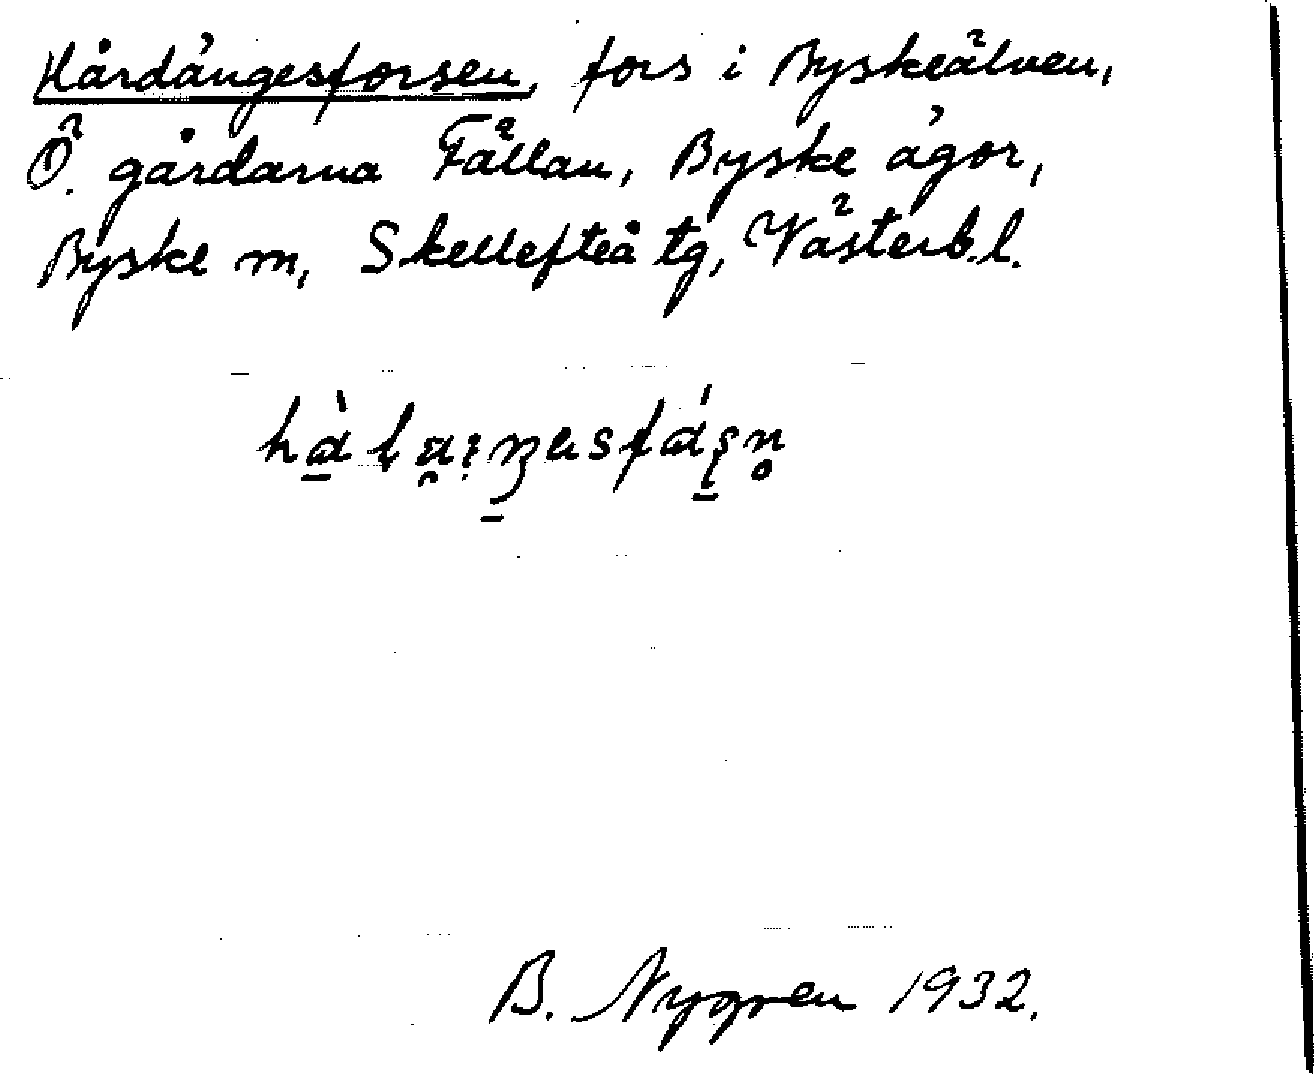 Hårdängesforsen, fors i Byskeälven,
Ö. gårdarna Fällan, Byske ägor,
Byske m, Skellefteå tg, Västerb.l.
B. Nygren 1932.